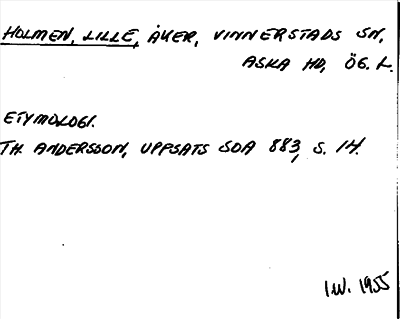 HOLMEN, LILLE, ÅKER, VINNERSTADS SN,
ASKA HD, ÖG. L.
ETYMOLOGI.
TH. ANDERSSON, UPPSATS SOA 883, S. 14.
I.W. 1955